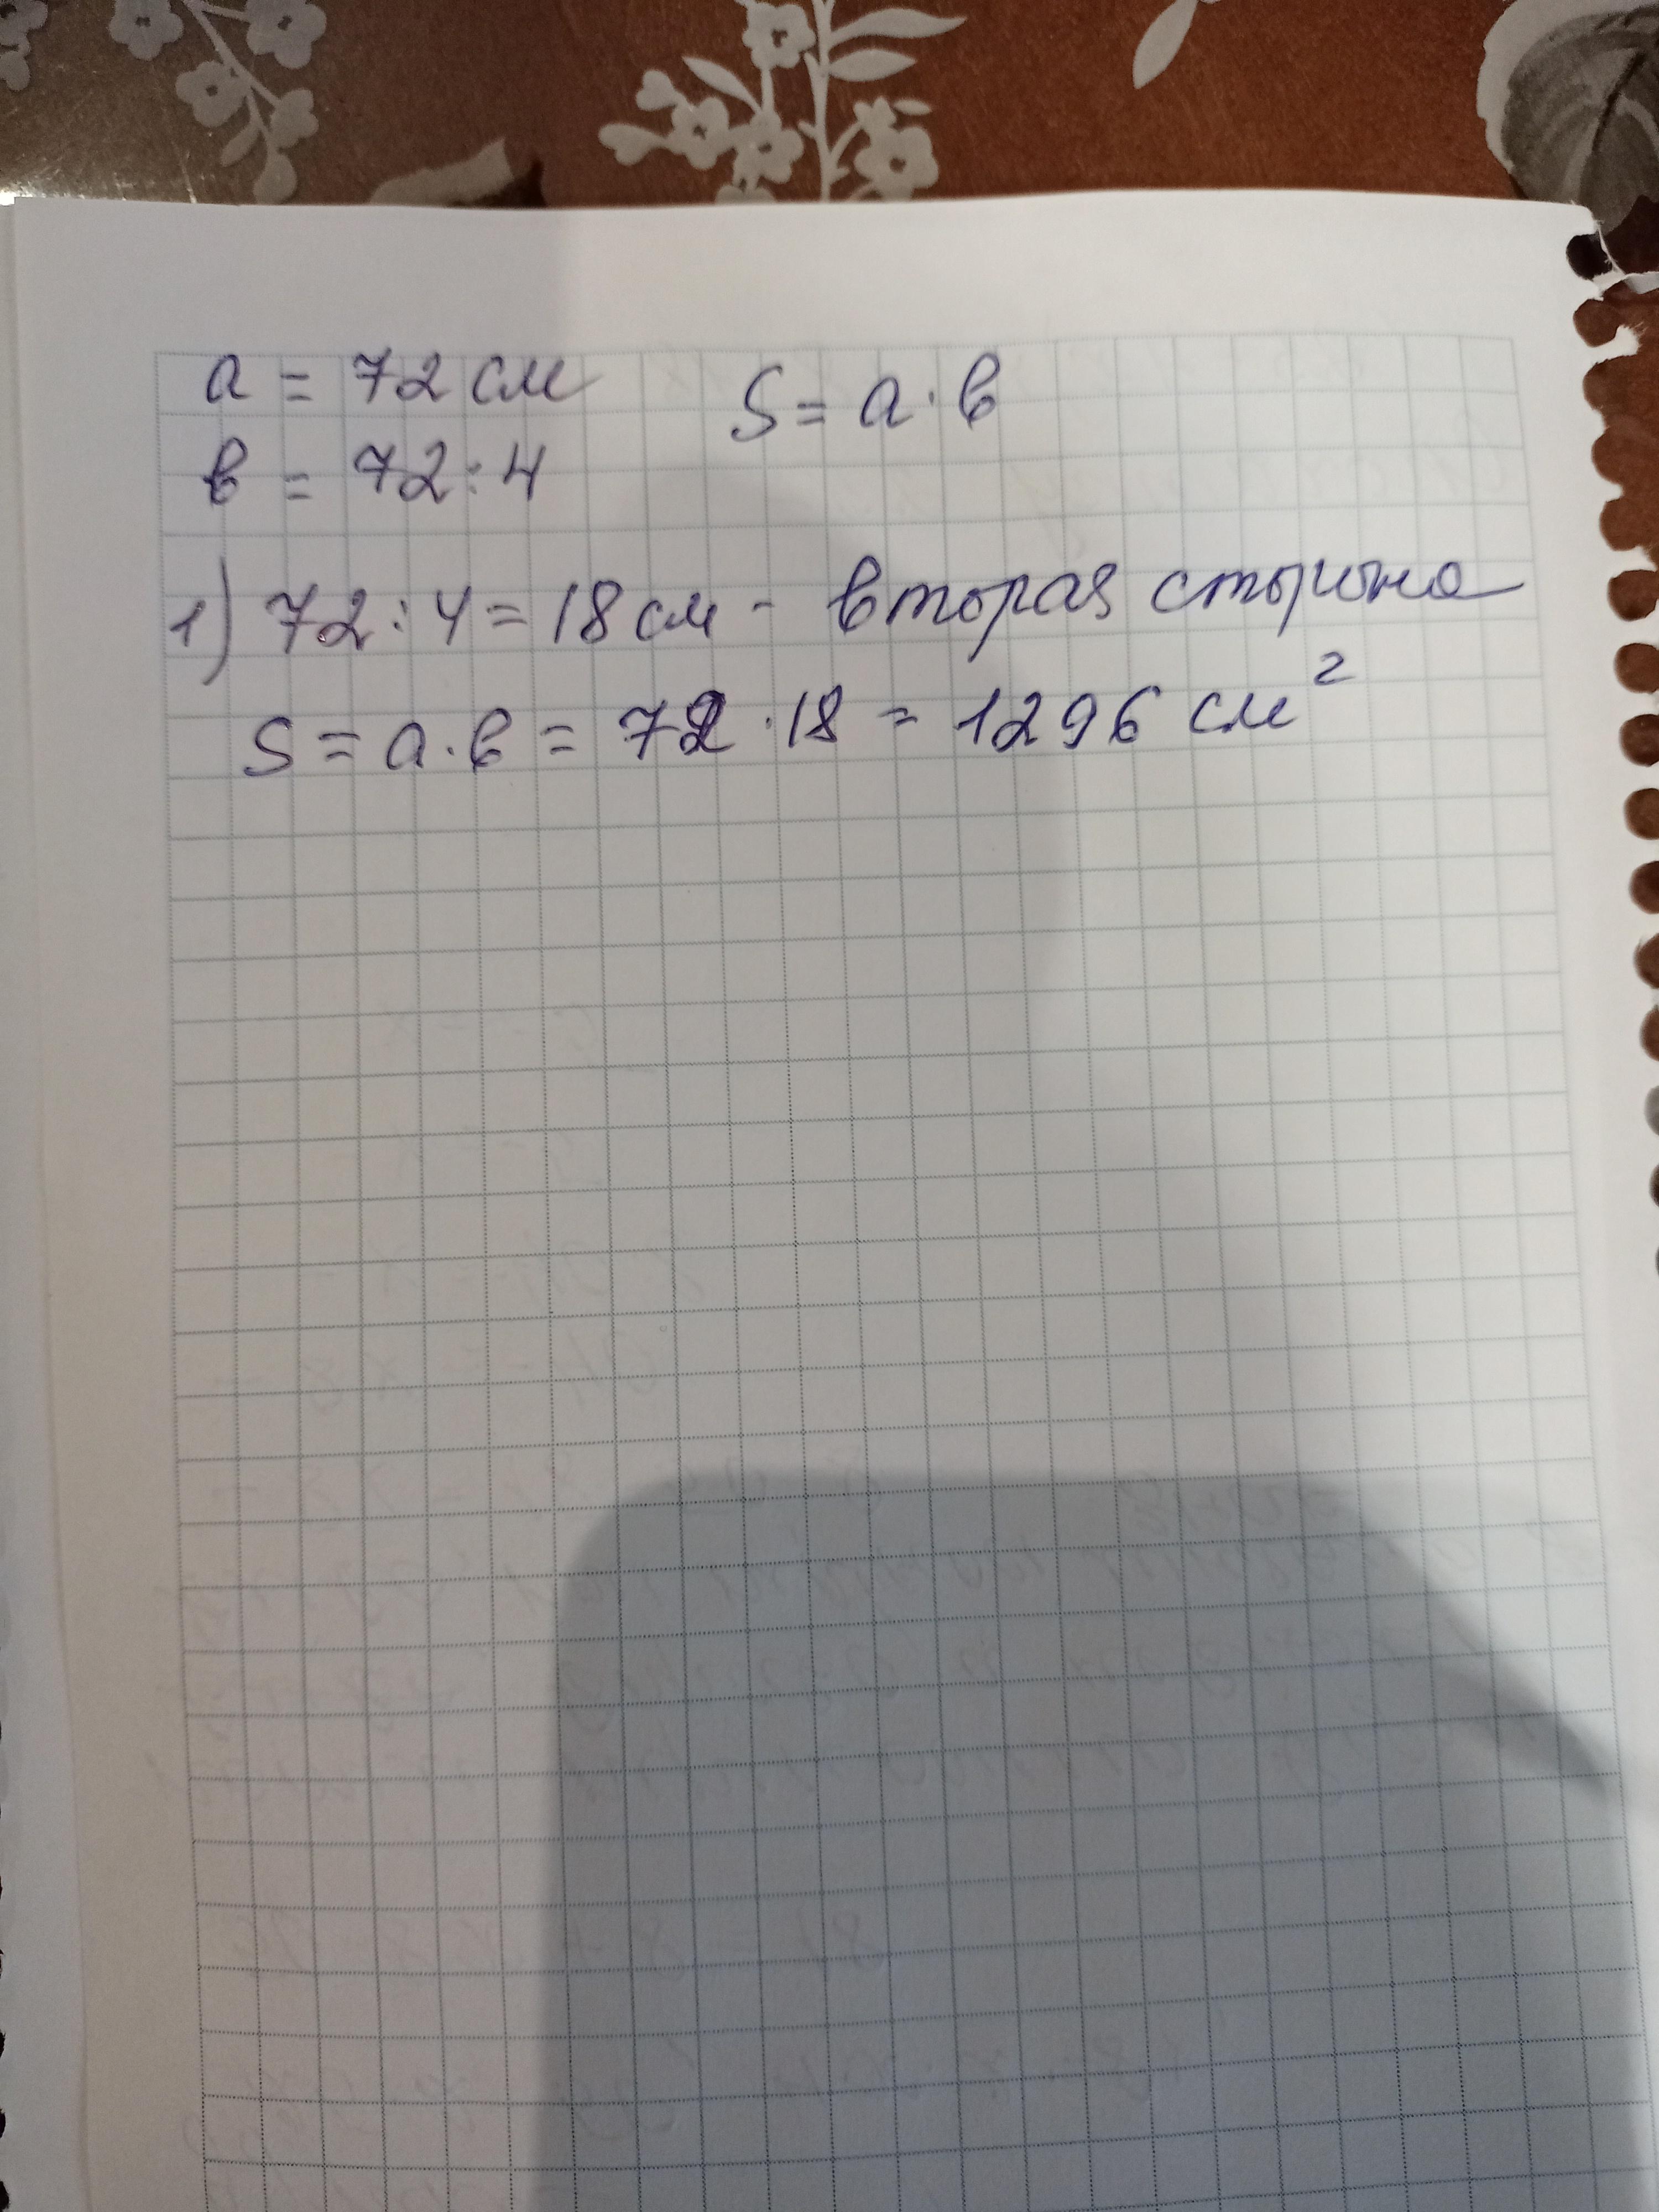 a = 72 см
S = a · в
в = 72 : 4
1) 72 : 4 = 18 см - вторая сторона
S = a · в = 72 · 18 = 1296 см²